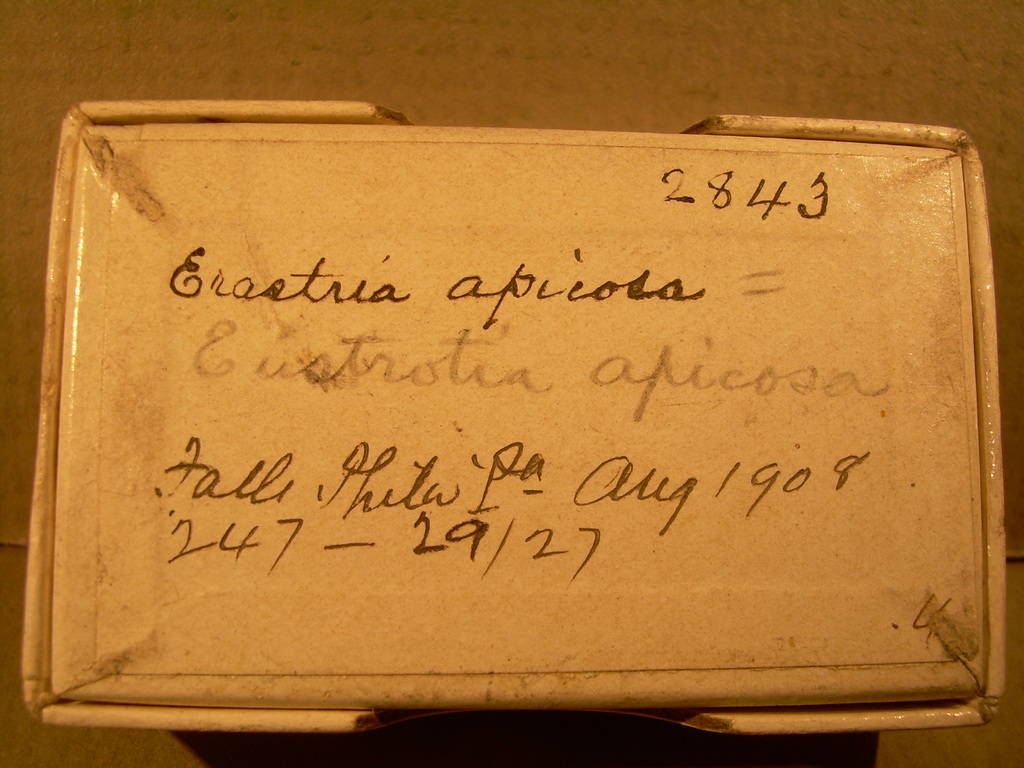 2843
Erastria apicosa =
Eustrotia apicosa
Falls Phila Pa Aug 1908
247 - 29/27
.4